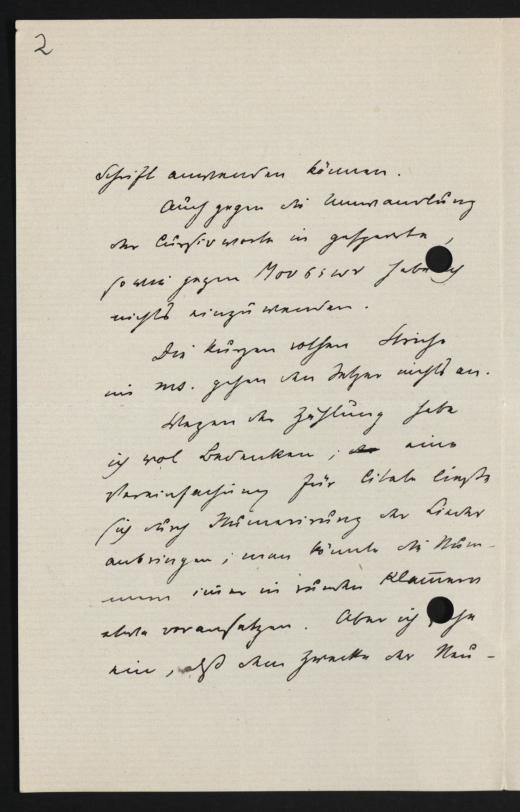 2
Schrift anwenden können.
Auch gegen die Umwandlung
der Cursivworte in gesperrte,
sowie gegen habe ich
nichts einzuwenden.
Die kurzen rothen Striche
im ms. gehen den Setzer nichts an.
Wegen der Zählung habe
ich wol Bedenken; eine
Vereinfachung für Citate liesse
sich durch Numerirung der Lieder
anbringen; man könnte die Num-
mern in runden Klam̅ern
voransetzen. Aber ich sehe
ein, daß dem Zwecke der Neu-